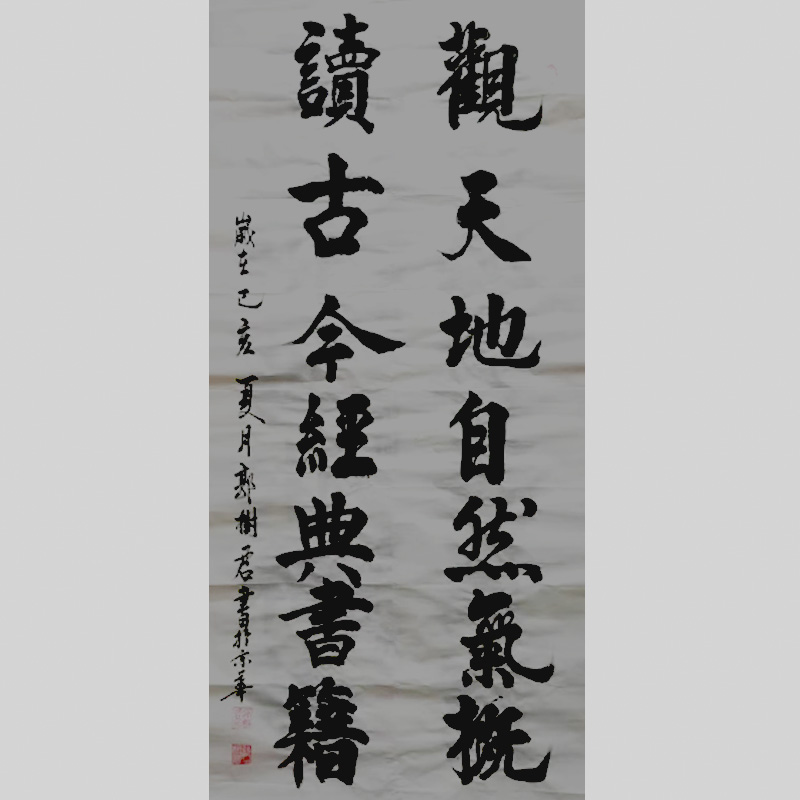 觀天地自然氣概
讀古今經典書籍
歲在己亥夏月郭樹君書於京華